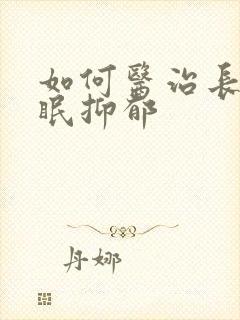 如何醫治長
眠抑郁
丹娜